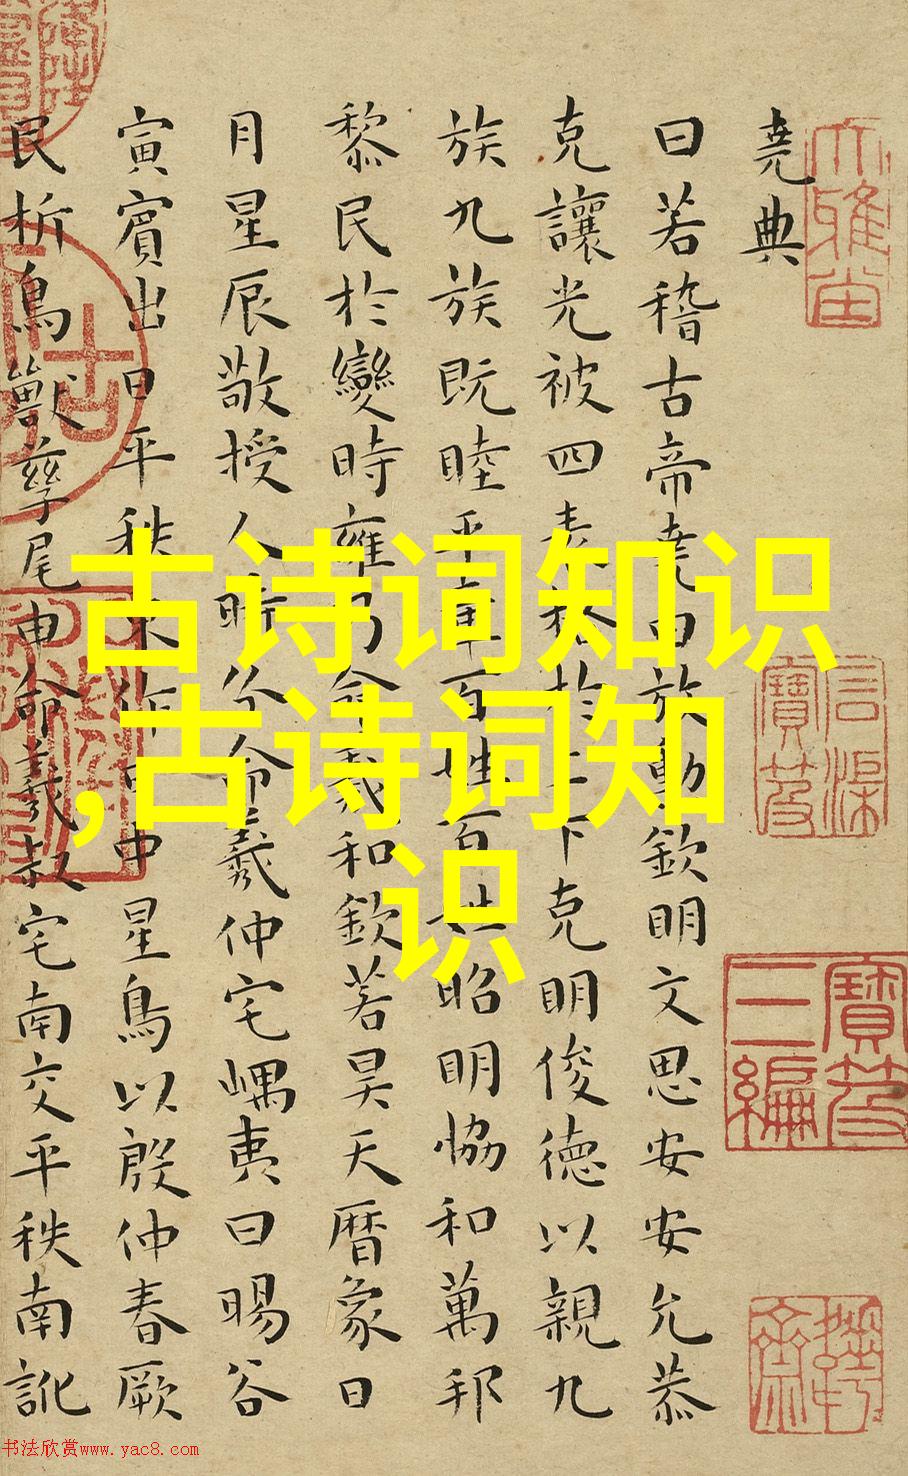 堯典
曰若稽古帝堯曰放勳欽明文思安安允恭
克讓光被四表格於上下克明俊德以親九
族九族既睦平章百姓百姓昭明恊和萬邦
黎民於變時雍乃命羲和欽若昊天暦象日
月星辰敬授人時分命羲仲宅嵎夷曰暘谷
寅賓出日平秩東作日中星鳥以殷仲春厥
民析鳥獸孳尾申命羲叔宅南交平秩南訛
石渠寶笈
寶笈三編
古诗词知识
,古诗词知
识
书法欣赏www.yac8.com